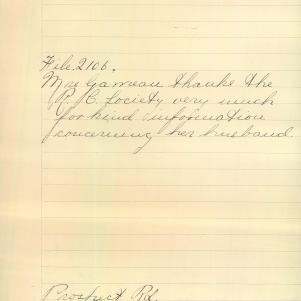 File 2106.
Mrs Garneau thanks the
R. C. Society very much
for kind information
concerning her husband.
Prospect Rd.